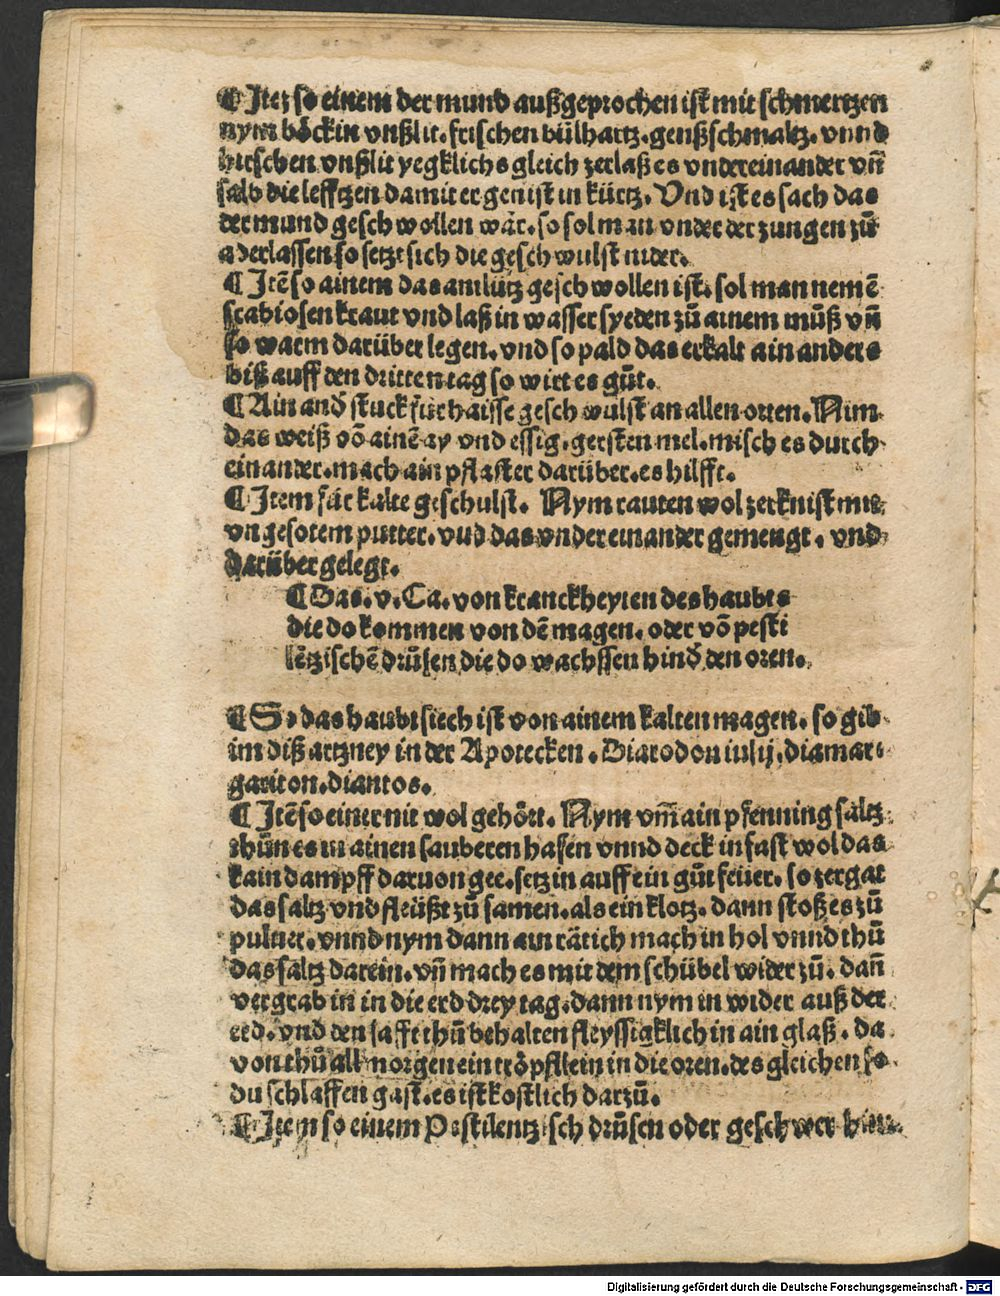 ¶ Itez so einem der mund außgeprochen ist mit schmertzen
nym böckin vnßlit. frischen bülhartz. genßschmaltz. vnnd
hirschen vnßlit yegklichs gleich zerlaß es vndereinander vn̄
salb die lefftzen damit er genist in kürtz. Vnd ist es sach das
der mund geschwollen wär. so sol man vnder der zungen zů
aderlassen so setzt sich die geschwulst nider.
¶ Itē so ainem das antlütz geschwollen ist. sol man nemē
scabiosen kraut vnd laß in wasser syeden zů ainem můß vn̄
so warm darüber legen. vnd so pald das erkalt ain anders
biß auff den dritten tag so wirt es gůt.
¶ Ain and̄ stuck für haisse geschwulst an allen orten. Nim
das weiß vō ainē ay vnd essig. gersten mel. misch es durch
einander. mach ain pflaster darüber. es hilfft.
¶ Item für kalte geschulst. Nym rauten wol zerknist mit
vngesotem putter. vnd das vndereinander gemengt. vnd
darüber gelegt.
¶ Das. v. Ca. von kranckheyten des haubts
die do kommen von dē magen. oder vō pesti
lētzischē drůsen die do wachssen hind̄ den oren.
¶ So das haubt siech ist von ainem kalten magen. so gib
im diß artzney in der Apotecken. Diarodon iulij. diamar
gariton. diantos.
¶ Itē so einer nit wol gehört. Nym vm̄ ain pfenning saltz
thůn es in ainen sauberen hafen vnnd deck in fast wol das
kain dampff daruon gee. setz in auff ein gůt feüer. so zergat
das saltz vnd fleüßt zů samen. als ein klotz. dann stoß es zů
puluer. vnnd nym dann ain rätich mach in hol vnnd thů
das saltz darein. vn̄ mach es mit dem schübel wider zů. dan̄
vergrab in in die erd drey tag. dann nym in wider auß der
erd. vnd den safft thů behalten fleyssigklich in ain glaß. da
von thů all morgen ein tröpfllein in die oren. des gleichen so
du schlaffen gast. es ist kostlich darzů.
¶ Item so einem Pestilentzisch drůsen oder geschwer hin
Digitalisierung gefördert durch die Deutsche Forschungsgemeinschaft - DFG